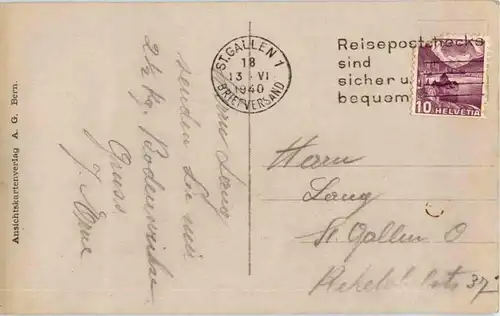 Ansichtskartenverlag A. G. Bern.
Herrn Lang
senden Sie mir
2½ Kg. Bodenwichse
Gruss
J.
ST. GALLEN 1
18
13 · VI
1940
BRIEFVERSAND
Reisepostchecks
sind
sicher u
bequem
10 HELVETIA
Herrn
Lang
St. Gallen O
37